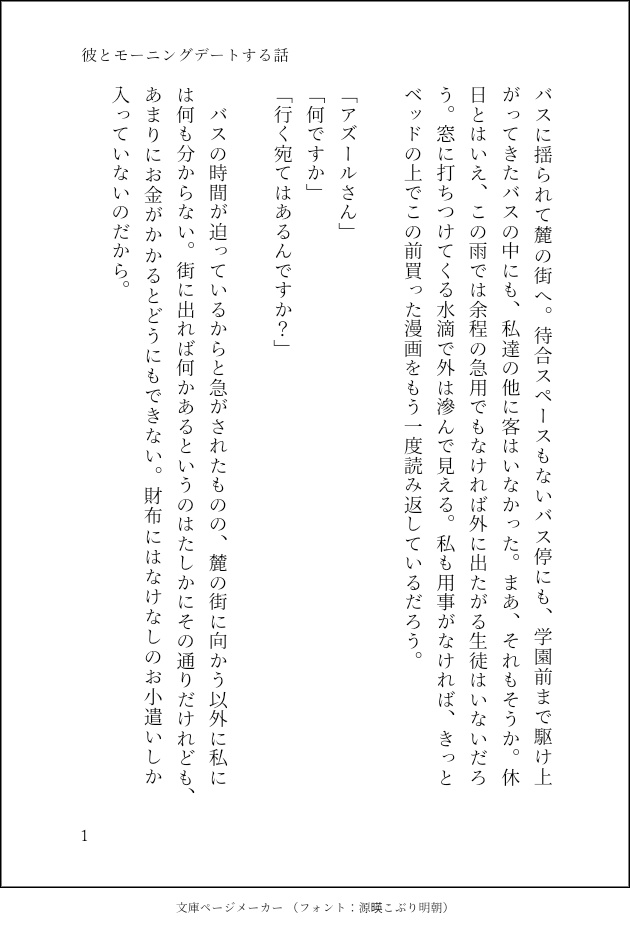 彼とモーニングデートする話
バスに揺られて麓の街へ。待合スペースもないバス停にも、学園前まで駆け上
がってきたバスの中にも、私達の他に客はいなかった。まあ、それもそうか。休
日とはいえ、この雨では余程の急用でもなければ外に出たがる生徒はいないだろ
う。窓に打ちつけてくる水滴で外は滲んで見える。私も用事がなければ、きっと
ベッドの上でこの前買った漫画をもう一度読み返しているだろう。
「アズールさん」
「何ですか」
「行く宛てはあるんですか？」
バスの時間が迫っているからと急がされたものの、麓の街に向かう以外に私に
は何も分からない。街に出れば何かあるというのはたしかにその通りだけれども、
あまりにお金がかかるとどうにもできない。財布にはなけなしのお小遣いしか
入っていないのだから。
1
文庫ページメーカー（フォント：源暎こぶり明朝）